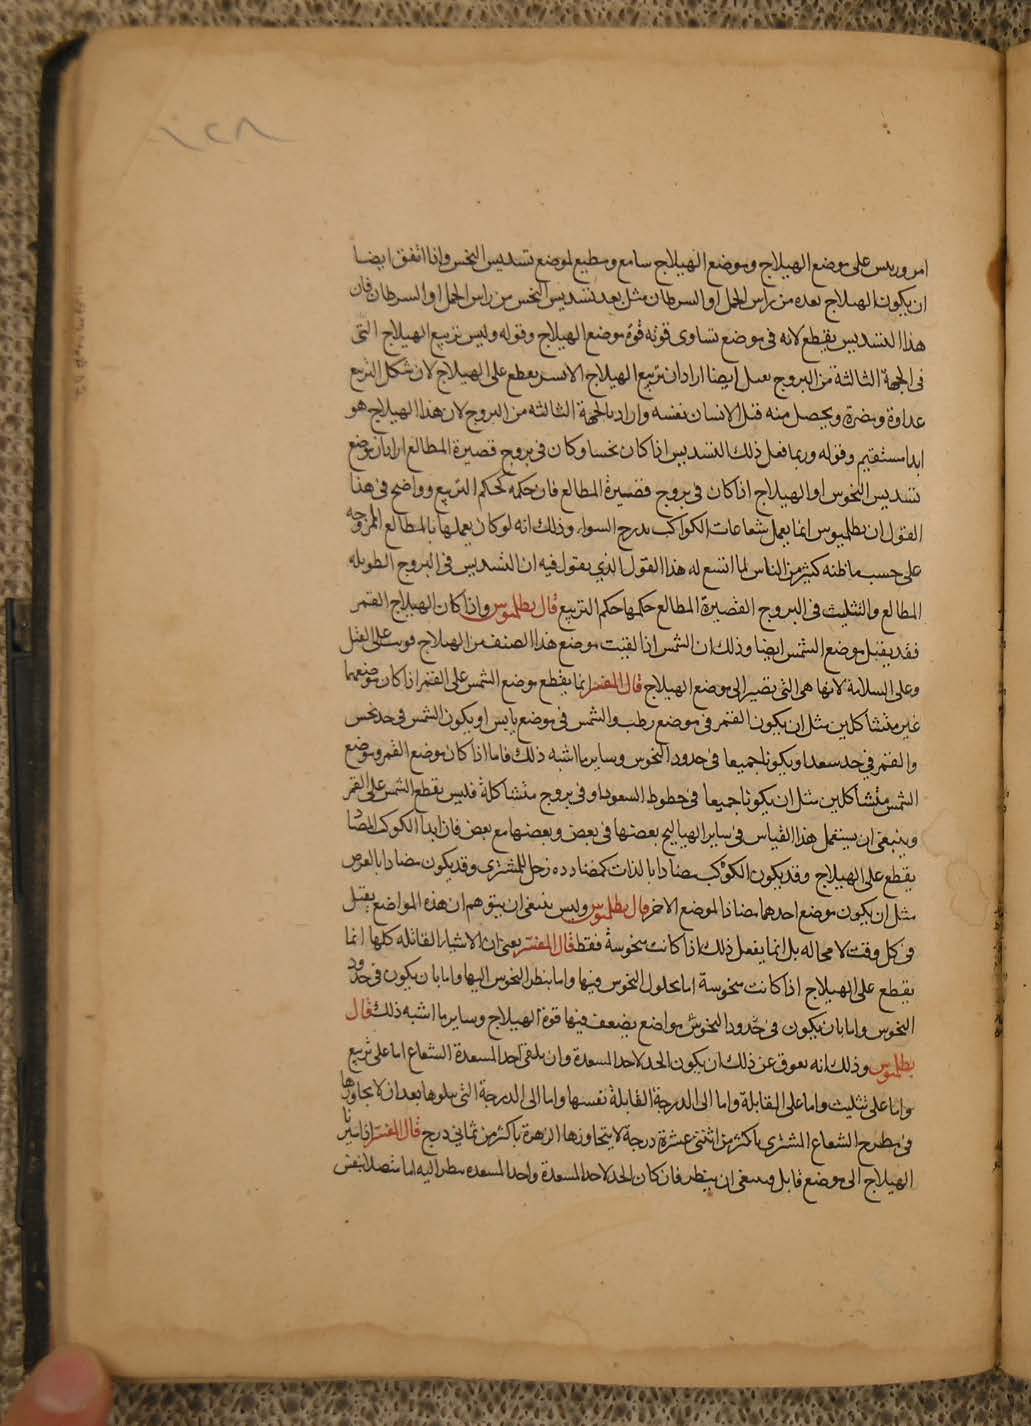 ١٢٨
على موضع الهيلاج وموضع الهيلاج سامع ومطيع لموضع تسديس النحس واذا اتفق ايضا
ان يكون الهيلاج بعده من راس الحمل او السرطان مثل بعد تسديس النحس من راس الحمل او السرطان فان
هذا التسديس يقطع لانه في موضع تساوى قوته قوة موضع الهيلاج وقوله وليس تربيع الهيلاج التى
في الجهة الثالثة من البروج ايضا اراد ان تربيع الهيلاج الايسر يقطع على الهيلاج لان شكل التربيع
عداوة ومضرة ويحصل منه قتل الانسان نفسه واراد بالجهة الثالثه من البروج لان هذا الهيلاج هو
ابدا مستقيم وقوله وربما فعل ذلك التسديس اذا كان نحسا وكان في بروج قصيرة المطالع اراد ان موضع
تسديس النحوس او الهيلاج اذا كان في بروج قصيرة المطالع فان حكمه كحكم التربيع وواضح في هذا
القول ان بطلميوس انما يعمل شعاعات الكواكب بدرج السواء وذلك انه لو كان يعملها بالمطالع
على حسب ما ظنه كثير من الناس لما اتسع له هذا القول الذي يقول فيه ان التسديس في البروج الطويله
المطالع والتثليث في البروج القصيرة المطالع حكمها حكم التربيع قال بطلميوس واذا كان الهيلاج القمر
فقد يقتل موضع الشمس ايضا وذلك ان الشمس اذا لقيت موضع هذا الصنف من الهيلاج قويت على القتل
وعلى السلامة لانها هى التى تصير الى موضع الهيلاج قال المفسر انما يقطع موضع الشمس على القمر اذا كان موضعهما
غير متشاكلين مثل ان يكون القمر في موضع رطب والشمس في موضع يابس او يكون الشمس في حد نحس
والقمر في حد سعد او يكونا جميعا في حدود النحوس وساير ما اشبه ذلك فاما اذا كان موضع القمر وموضع
الشمس متشاكلين مثل ان يكونا جميعا في حظوظ السعود او في بروج متشاكلة فليس يقطع الشمس على القمر
وينبغى ان يستعمل هذا القياس في ساير الهياليج بعضها في بعض وبعضها مع بعض فان ابدا الكوكب المضاد
يقطع على الهيلاج وقد يكون الكوكب مضادا بالذات كمضاددة زحل للمشترى وقد يكون مضادا بالعرض
مثل ان يكون موضع احدهما مضادا لموضع الاخر قال بطلميوس وليس ينبغى ان يتوهم ان هذه المواضع يقتل
في كل وقت لا محاله بل انما يفعل ذلك اذا كانت منحوسة فقط قال المفسر يعنى ان الاشيا القاتله كلها انما
يقطع على الهيلاج اذا كانت منحوسة اما بحلول النحوس فيها واما بنظر النحوس اليها واما بان يكون في حدود
النحوس واما بان يكون في حدود النحوس مواضع يضعف فيها قوة الهيلاج وساير ما اشبه ذلك قال
بطلميوس وذلك انه يعوق عن ذلك ان يكون الحد لاحد المسعدة وان يلقى احد المسعدة الشعاع اما على تربيع
واما على تثليث واما على المقابلة واما الى الدرجة القابلة نفسها واما الى الدرجة التى يتلوها بعد ان لا يجاوزها
في مطرح الشعاع المشترى باكثر من اثنتى عشرة درجة لا يتجاوزها الزهرة باكثر من ثمانى درج قال المفسر اذا سيرنا
الهيلاج الى موضع قابل فينبغى ان ينظر فان كان الحد لاحد المسعدة واحد المسعده ينظر اليه اما متصلا